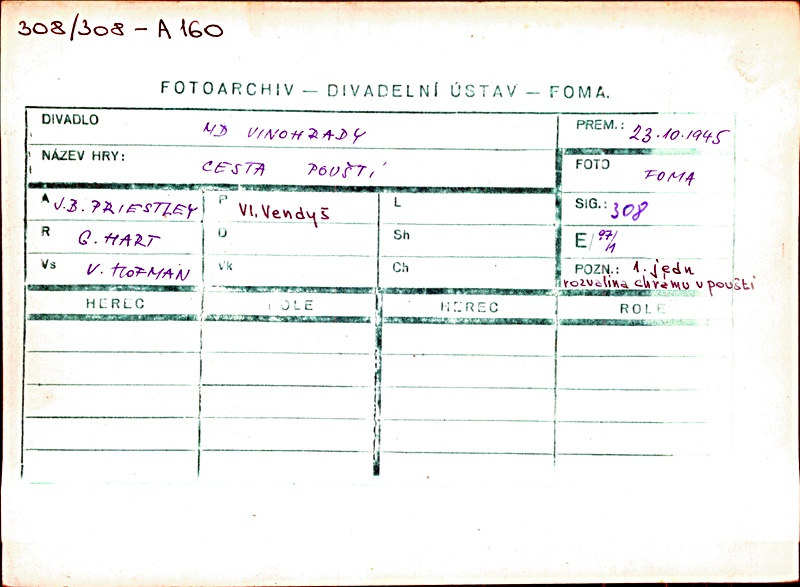 308/308 - A 160
FOTOARCHIV — DIVADELNÍ ÚSTAV — FOMA.
DIVADLO MD VINOHRADY
PREM.: 23.10.1945
NÁZEV HRY: CESTA POUŠTÍ
FOTO FOMA
A J.B. PRIESTLEY
P Vl. Vendyš
L
SIG.: 308
R G. HART
O
Sh
E/97/1
Vs V. HOFMAN
Vk
Ch
POZN.: 1. jedn
rozvalina chrámu v poušti
HEREC ROLE HEREC ROLE